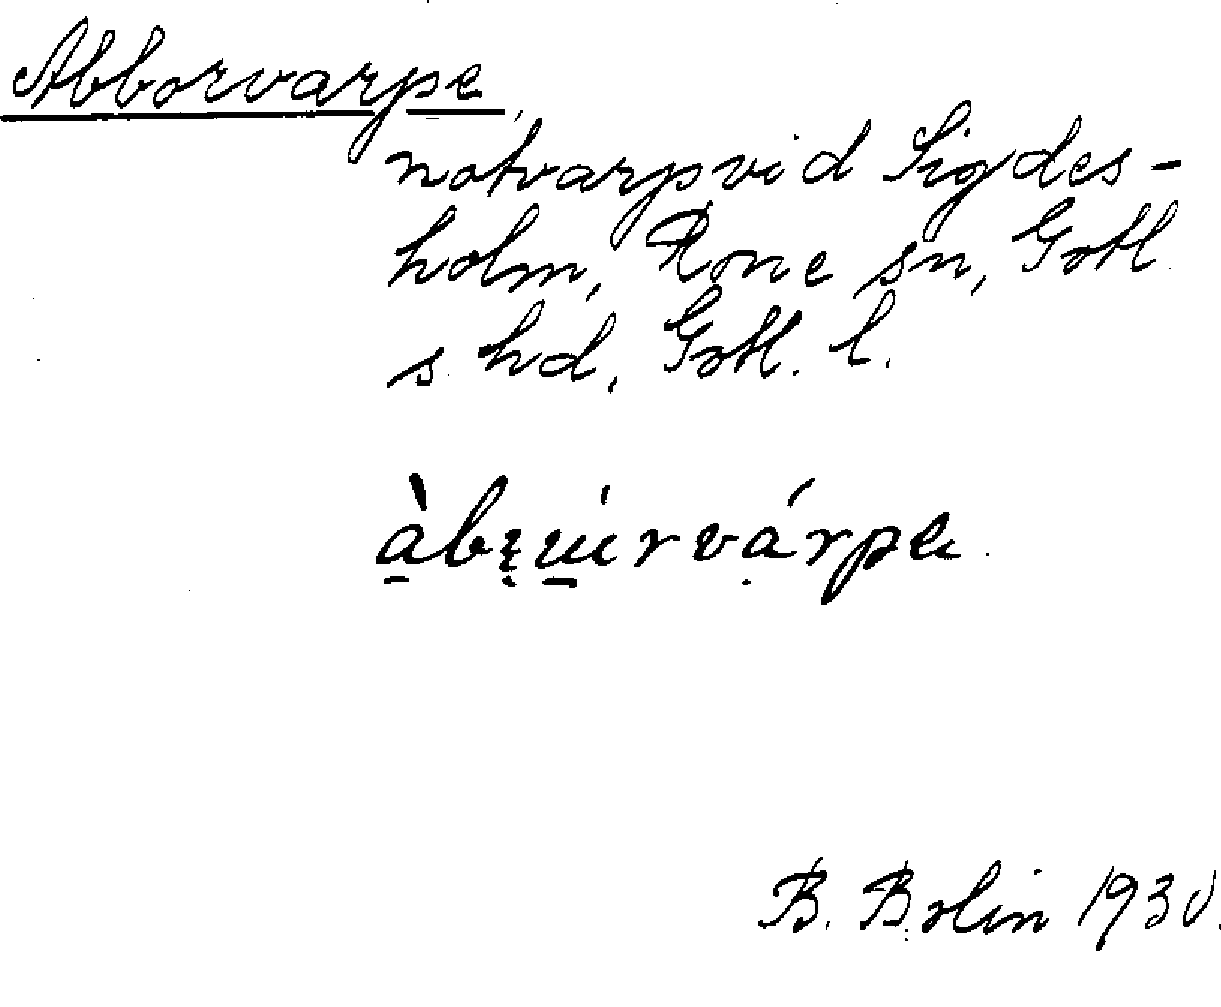 Abborvarpe,
notvarp vid Sigdes-
holm, Rone sn, Gotl
s hd, Gotl. l.
B. Bolin 1930.